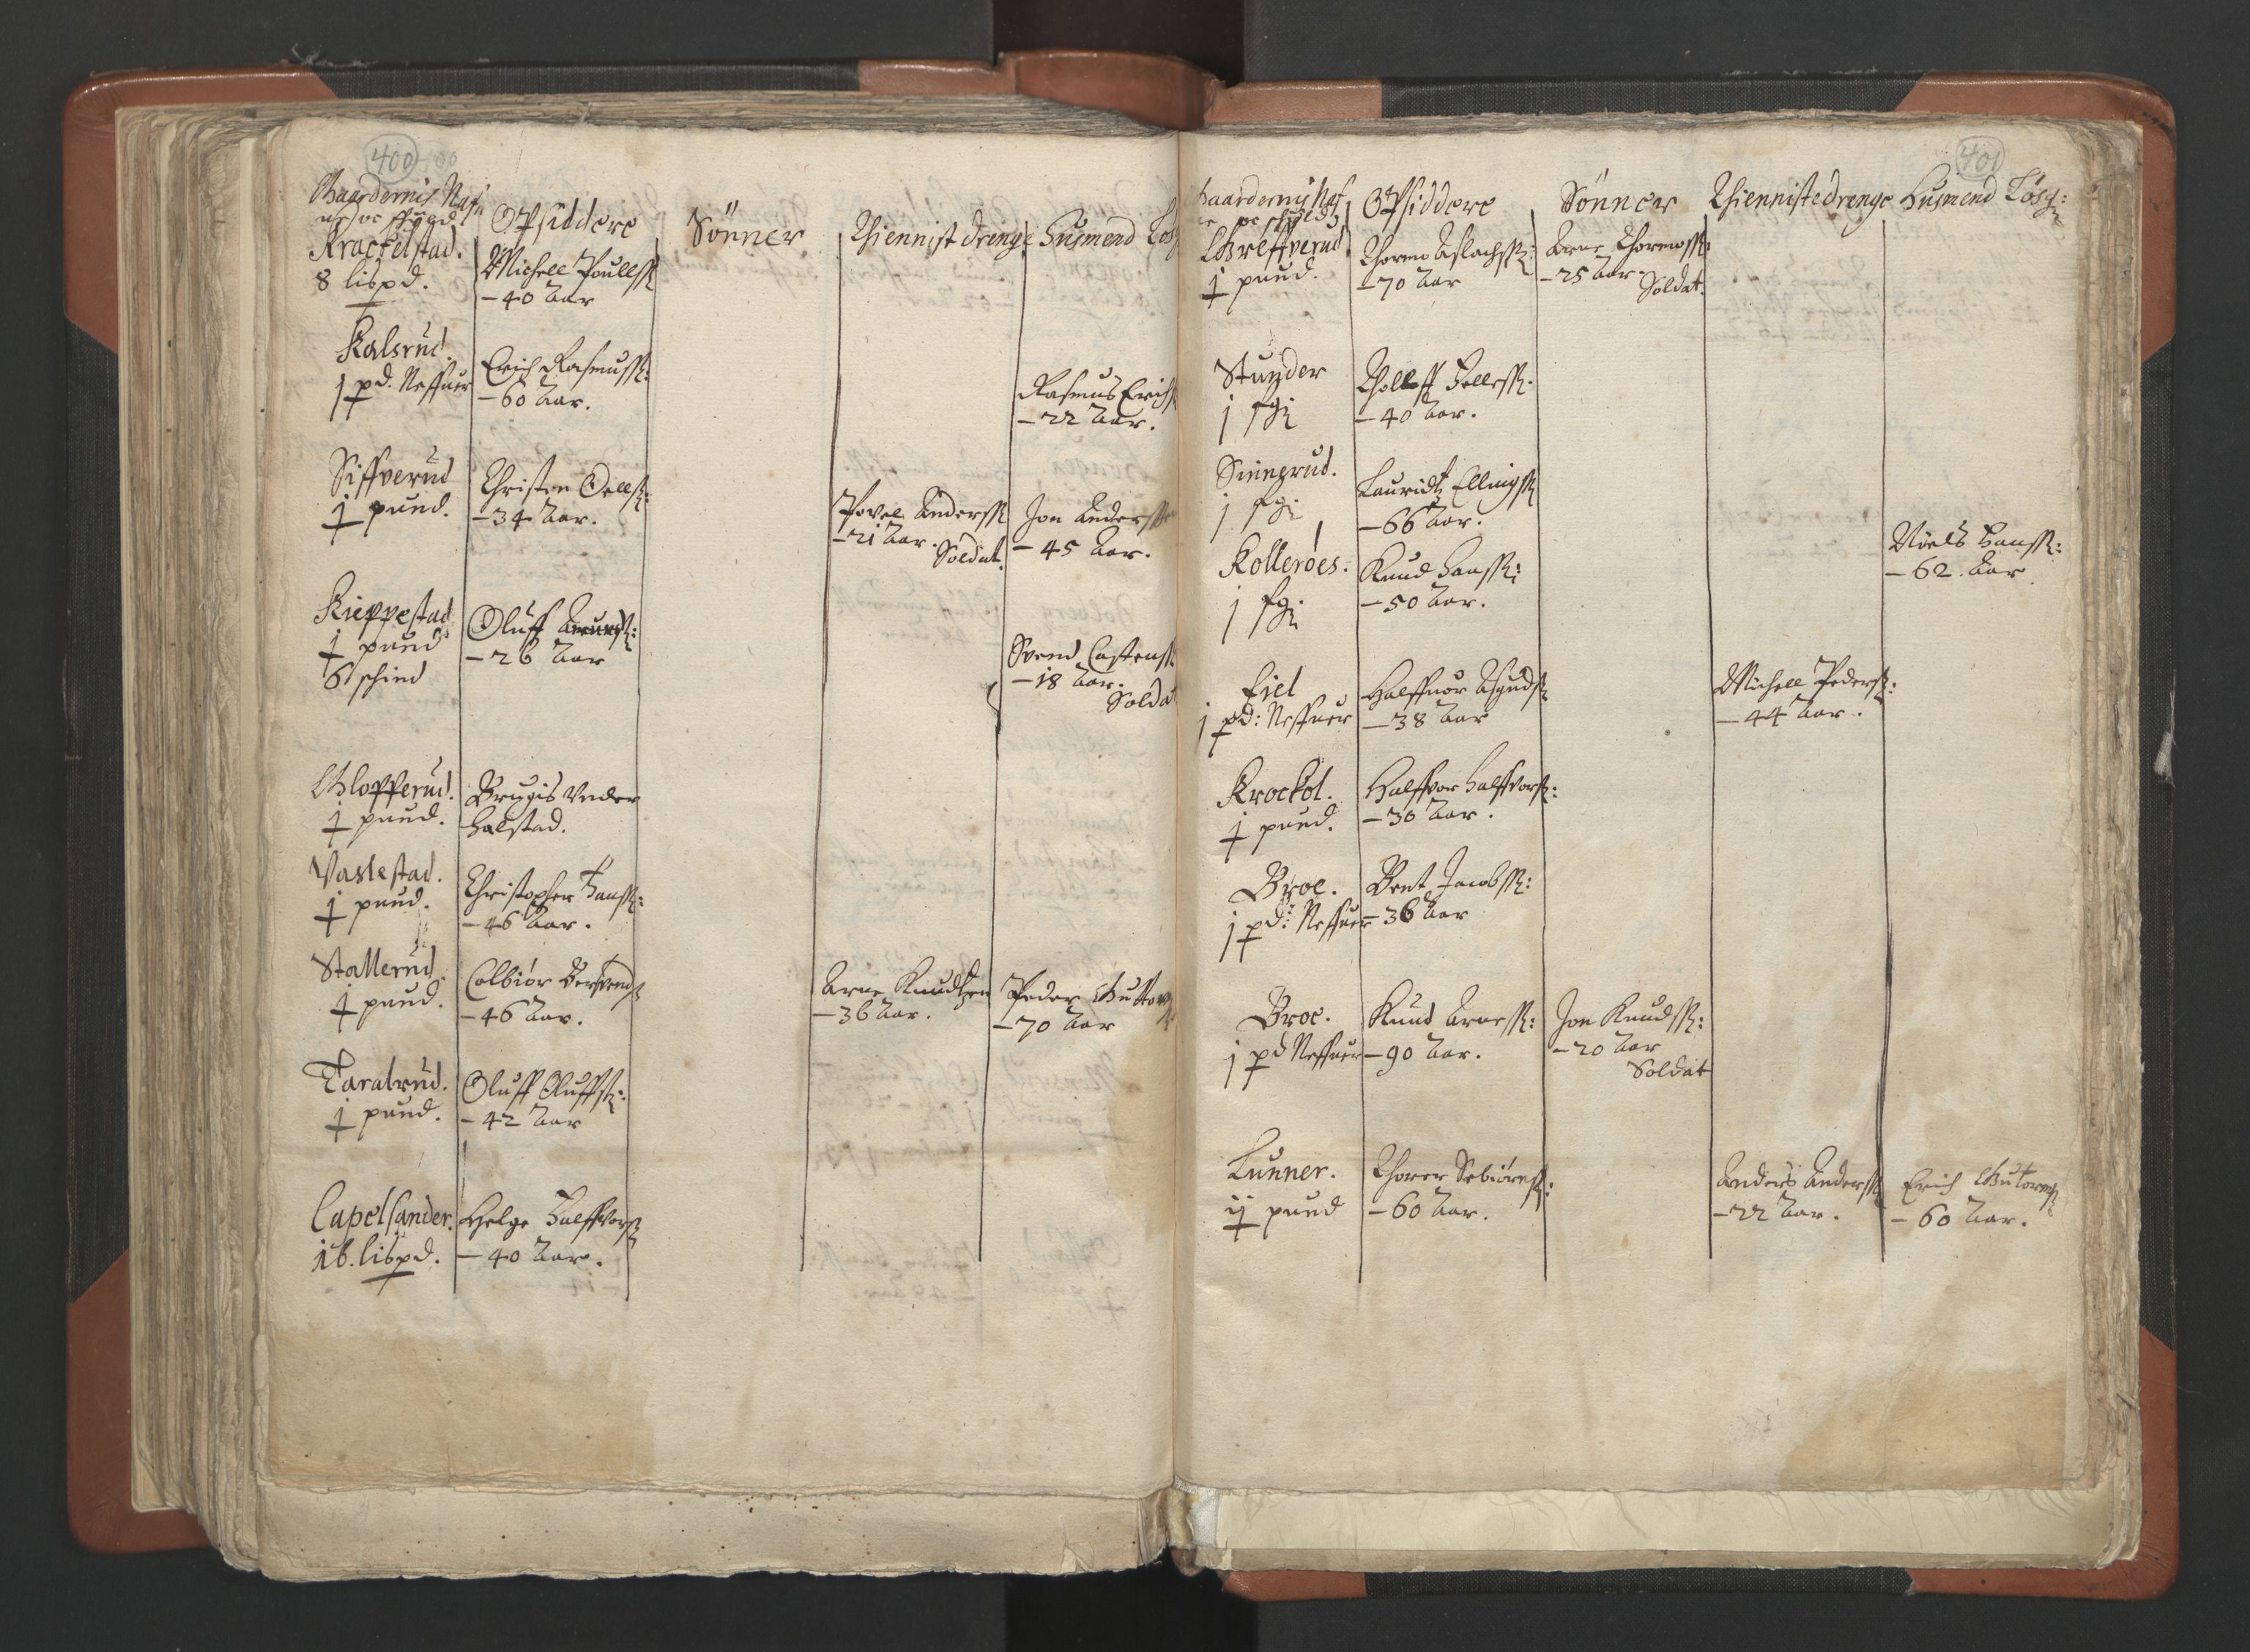 400
Gaardernis Nafn
Opsiddere
Sønner
Thiennist drenge
Husmend
Krackelstad.
8 lispd.
Michell Poullß:
- 40 Aar
Kalsrud.
1 pd. Neffuer
Erich Rasmusß:
- 60 Aar.
Rasmus Erichß
- 22 Aar.
Siffverud
1 pund.
Christen Oelß:
- 34 Aar.
Povel Anderß
- 21 Aar.
Soldat.
Jon Anderß
- 45 Aar.
Kieppestad
1 pund
6 schind
Oluff
- 26 Aar
Svend Castenß:
- 18 Aar.
Soldat
Glopperud.
1 pund.
Brugis under
halstad.
Vaslestad.
1 pund.
Christopher Hanß:
- 46 Aar.
Stallerud.
1 pund.
Colbiør
- 46 Aar.
Arne Knudtzen
- 36 Aar.
Peder Guttorm
- 70 Aar
Taralrud.
1 pund.
Oluff Oluffß:
- 42 Aar
Capelsander.
16. lispd.
Helge Halffvorß
- 40 Aar.
401
Gaardernis Naf
Opsiddere
Sønner
Thiennistedrenge
Husmend Løsg:
Greffverud
1 pund.
Thormo Aslachß:
- 70 Aar
Arne Thormoß:
- 25 Aar.
Soldat.
Stuyder
1 fgz
Tholleff Helleß.
- 40 Aar.
Sinnerud.
1 fgz
Lauridtz Ellingß
- 66 Aar.
Kolleroes.
1 fgz
Knud Hanß:
- 50 Aar.
Niels Hanß:
- 62 Aar
Eiel
1 pd: Neffuer
Halffuor Asgudß
- 38 Aar
Michell Pederß:
- 44 Aar.
Krockol.
1 pund.
Halffvor halffvorß:
- 30 Aar.
Broe.
1 pd: Neffuer
Bent Jacobß:
- 36 Aar
Broe.
1 pd Neffuer
Knud Arneß:
- 90 Aar.
Jon Knudß:
- 20 Aar
Soldat
Lunner.
ij pund
Thorer Sebiørnß:
- 60 Aar.
Anders Anderß
- 22 Aar.
Erich Gutormß
- 60 Aar.